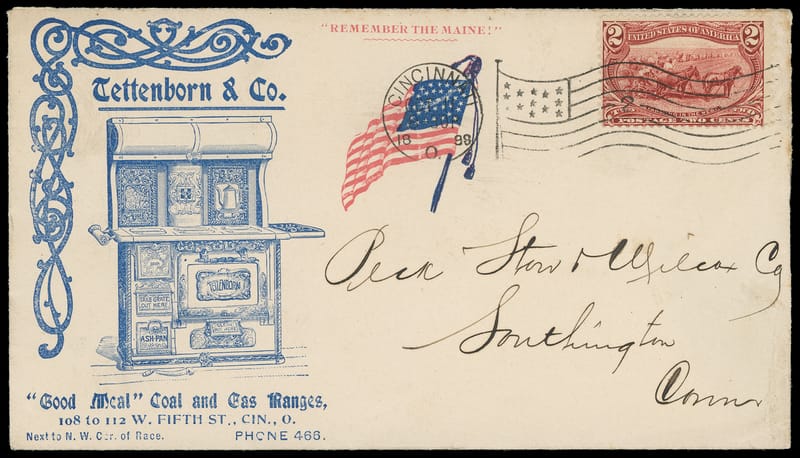 "REMEMBER THE MAINE!"
2 UNITED STATES OF AMERICA 2
POSTAGE TWO CENTS
CINCINNATI
18 98
O.
Tettenborn & Co.
TETTENBORN
TAKE GRATE
OUT HERE
ASH-PAN
Peck Stow & Wilcox Co
Southington
Conn
"Good Meal" Coal and Gas Ranges,
108 to 112 W. FIFTH ST., CIN., O.
Next to N. W. Cor. of Race. PHONE 466.